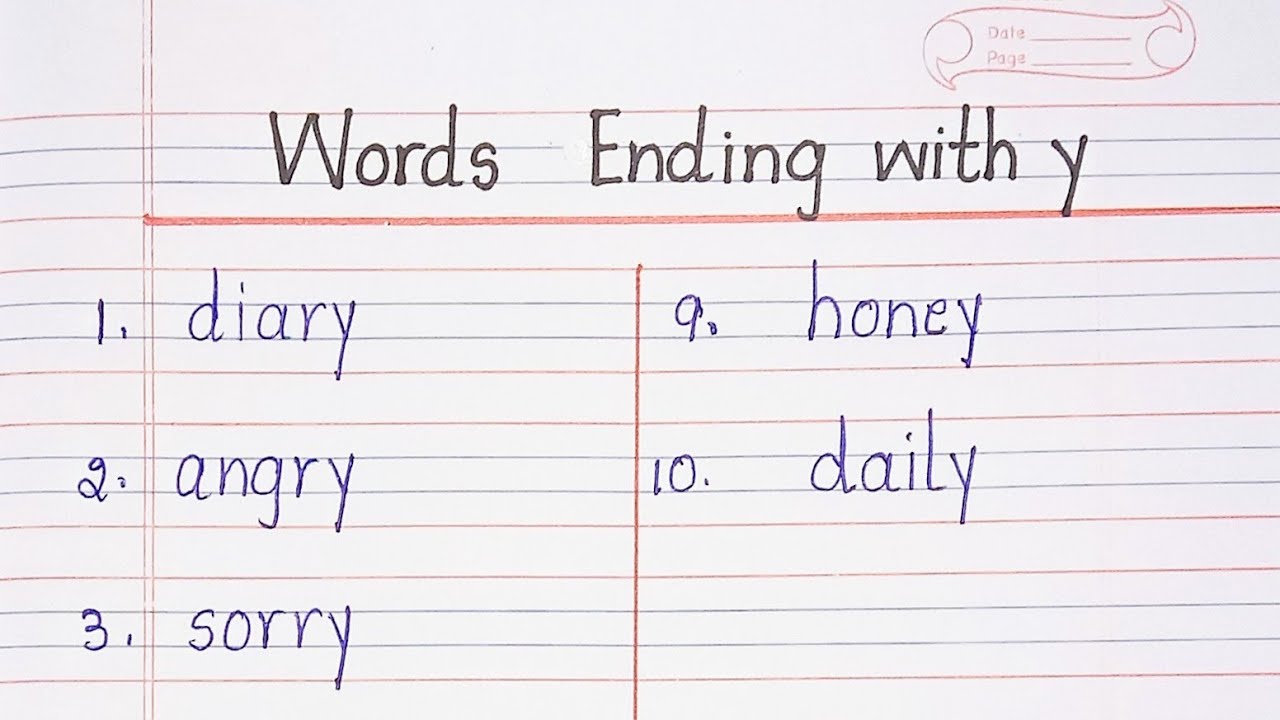 Date
Page
Words Ending with y
1. diary
2. angry
3. sorry
9. honey
10. daily